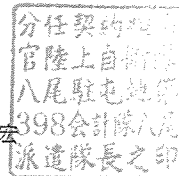 分任契約
官陸上自衛
八尾駐屯地
398会計隊八尾
派遣隊長之印
宏